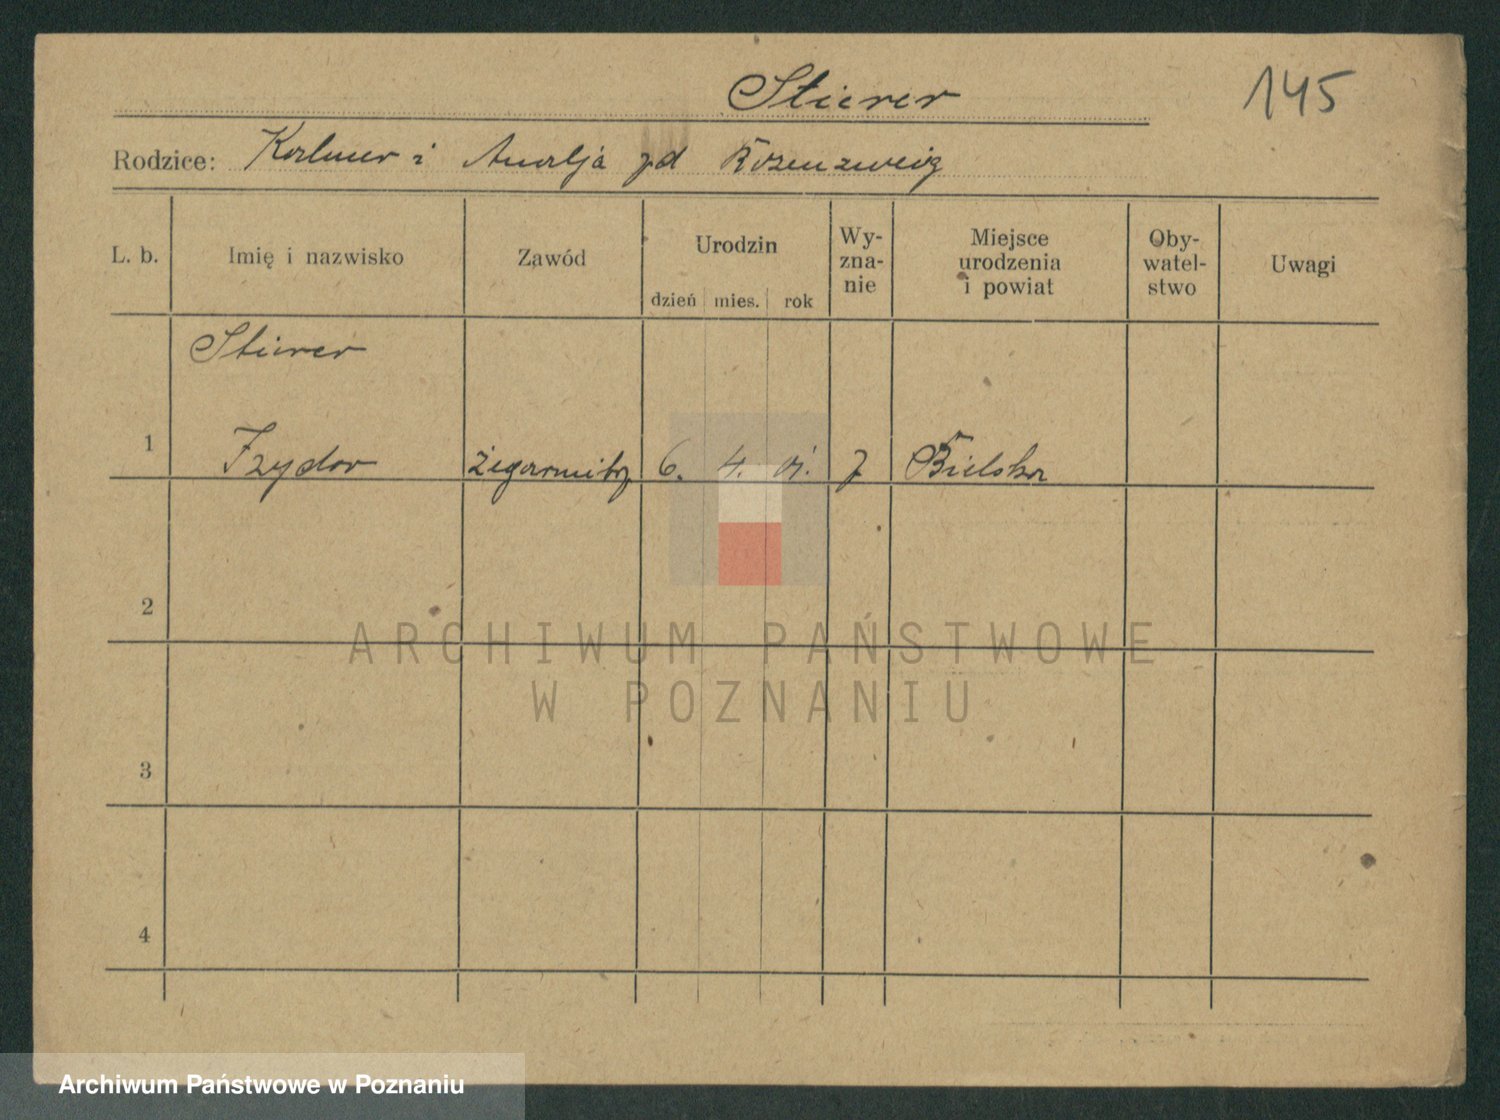 Stierer
145
Rodzice: Kalmer i Amalja zd Rozenzweig
L. b. Imię i nazwisko Zawód Urodzin dzień mies. rok Wy-zna-nie Miejsce urodzenia i powiat Oby-watel-stwo Uwagi
Stierer
1 Izydor zegarmitrz 6. 4. 01. ż Bielska
2
3
4
ARCHIWUM PAŃSTWOWE
W POZNANIU
Archiwum Państwowe w Poznaniu